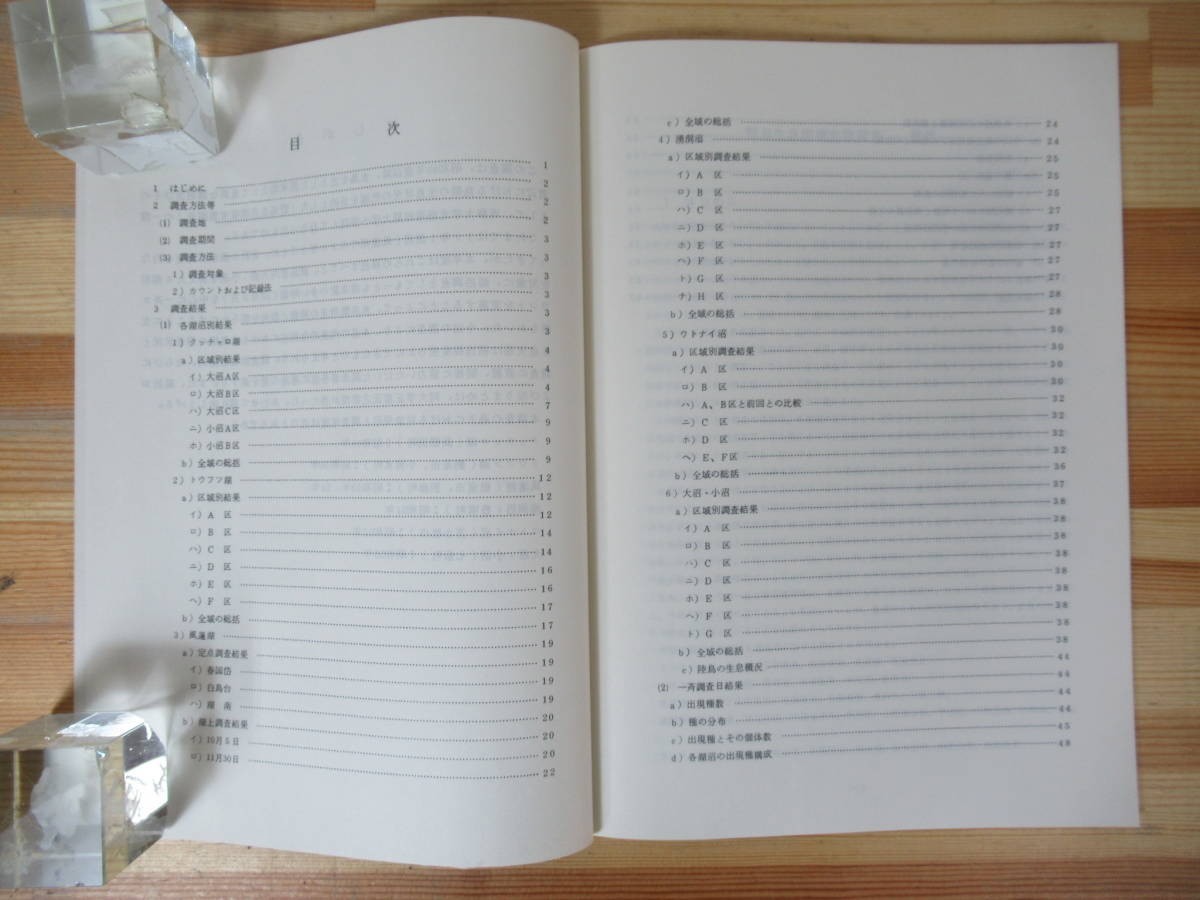 目次
1 はじめに 1
2 調査方法等 2
(1) 調査地 2
(2) 調査期間 2
(3) 調査方法 3
1) 調査対象 3
2) カウントおよび記録法 3
3 調査結果 3
(1) 各湖沼別結果 3
1) クッチャロ湖 3
a) 区域別結果 4
イ) 大沼A区 4
ロ) 大沼B区 4
ハ) 大沼C区 7
ニ) 小沼A区 9
ホ) 小沼B区 9
b) 全域の総括 9
2) トウフツ湖 12
a) 区域別結果 12
イ) A 区 12
ロ) B 区 14
ハ) C 区 14
ニ) D 区 16
ホ) E 区 16
ヘ) F 区 17
b) 全域の総括 17
3) 風蓮湖 19
a) 定点調査結果 19
イ) 春国岱 19
ロ) 白鳥台 19
ハ) 湖 南 20
b) 湖上調査結果 20
イ) 10月5日 20
ロ) 11月30日 22
c) 全域の総括 24
4) 湧洞沼 24
a) 区域別調査結果 25
イ) A 区 25
ロ) B 区 25
ハ) C 区 27
ニ) D 区 27
ホ) E 区 27
ヘ) F 区 27
ト) G 区 27
チ) H 区 28
b) 全域の総括 28
5) ウトナイ沼 30
a) 区域別調査結果 30
イ) A 区 30
ロ) B 区 30
ハ) A、B区と前回との比較 32
ニ) C 区 32
ホ) D 区 32
ヘ) E、F区 32
b) 全域の総括 36
6) 大沼・小沼 37
a) 区域別調査結果 38
イ) A 区 38
ロ) B 区 38
ハ) C 区 38
ニ) D 区 38
ホ) E 区 38
ヘ) F 区 38
ト) G 区 38
b) 全域の総括 38
c) 陸鳥の生息概況 44
(2) 一斉調査日結果 44
a) 出現種数 44
b) 種の分布 44
c) 出現種とその個体数 45
d) 各湖沼の出現種構成 48